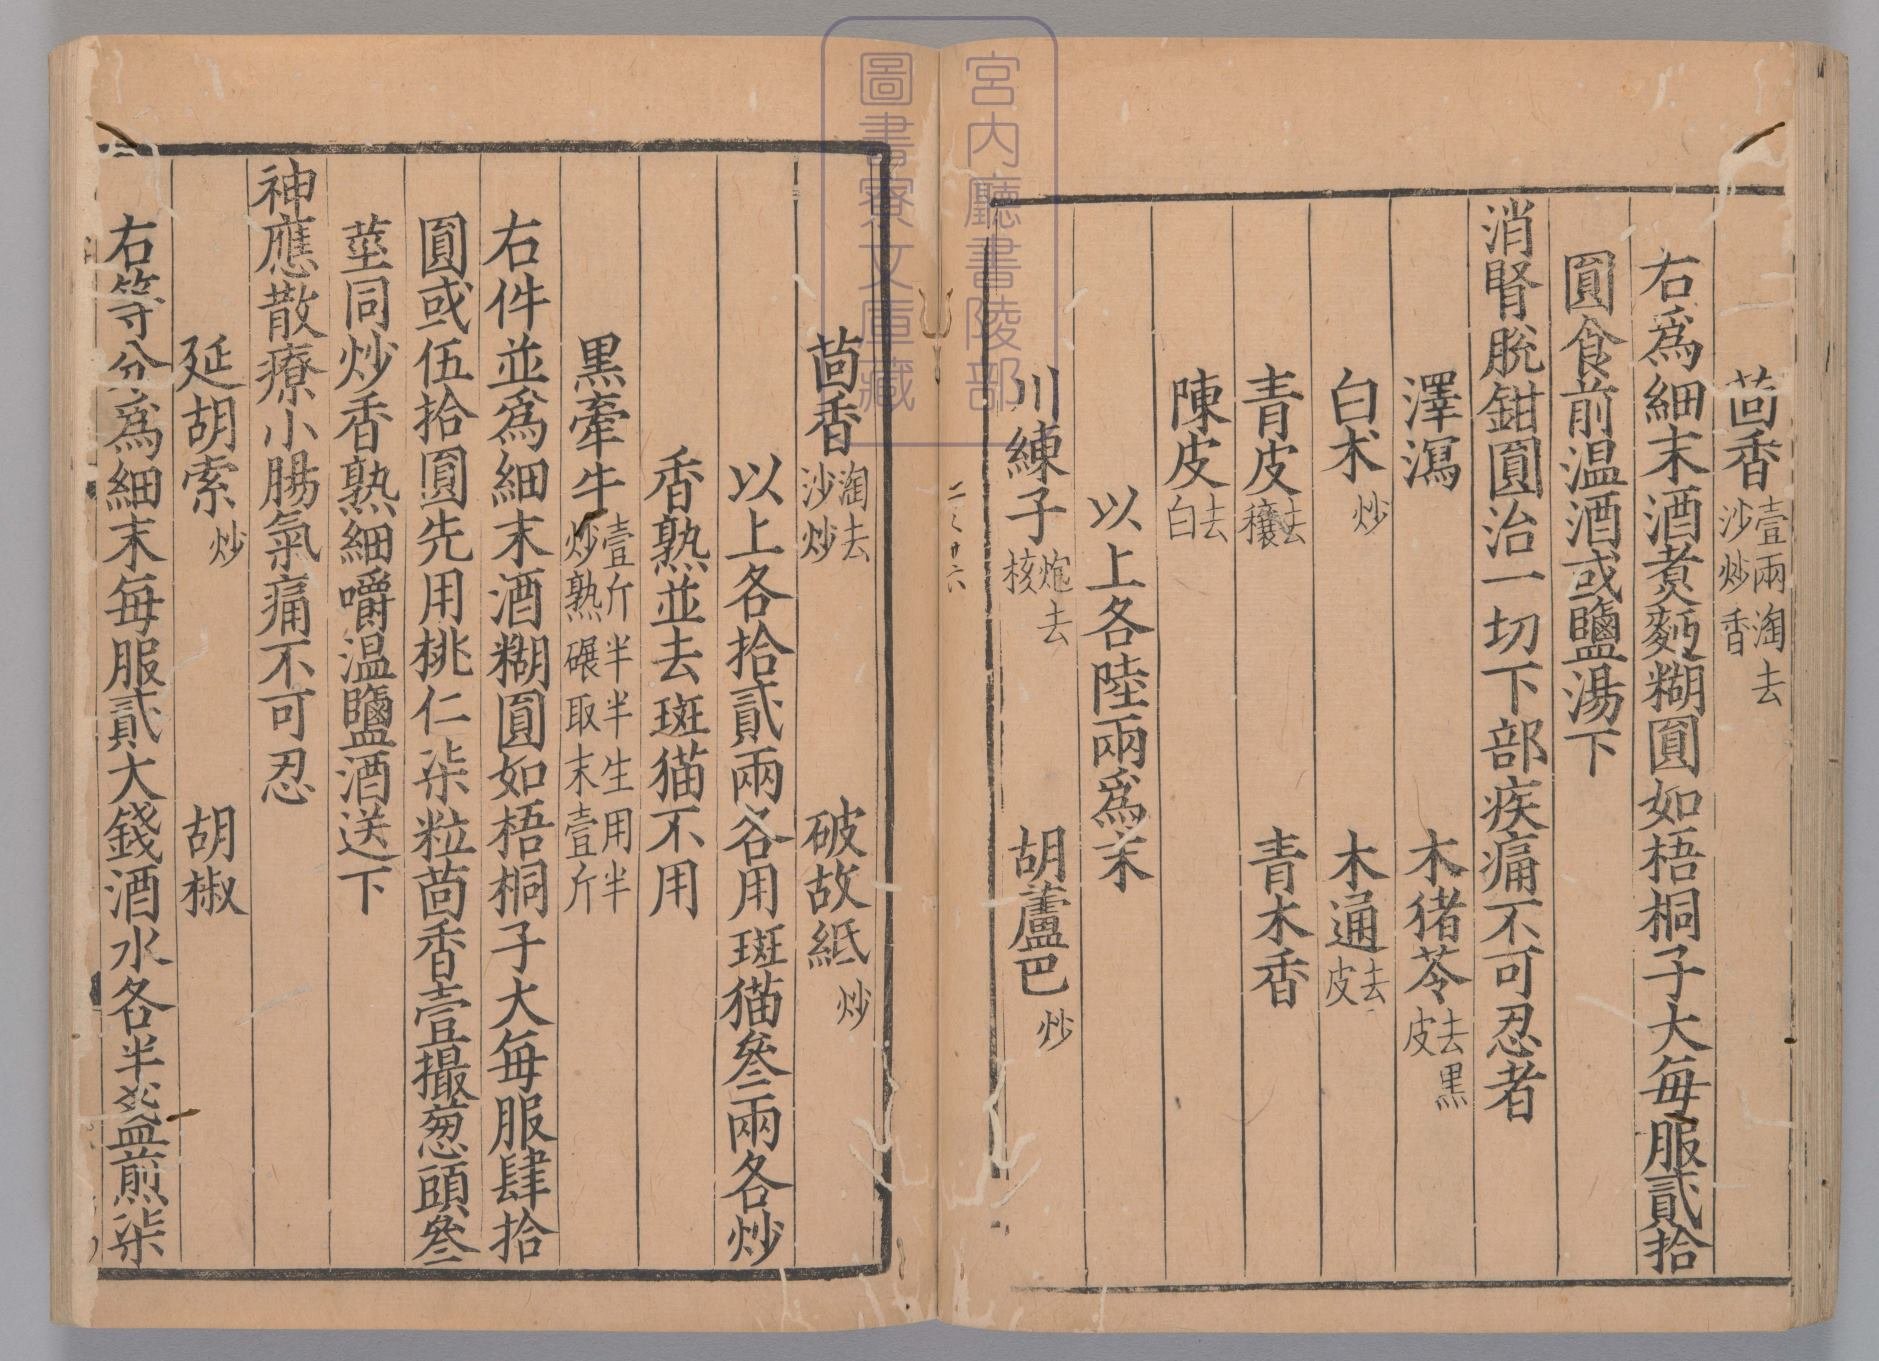 茴香壹兩淘去沙炒香
右爲細末酒煮麪糊圓如梧桐子大每服貳拾
圓食前温酒或鹽湯下
消腎脫鉗圓治一切下部疾痛不可忍者
澤瀉 木猪苓去黑皮
白朮炒 木通去皮
青皮去穰 青木香
陳皮去白
以上各陸兩爲末
川練子炮去核 胡蘆巴炒
茴香淘去沙炒 破故紙炒
以上各拾貳兩各用斑猫叄兩各炒
香熟並去斑猫不用
黑牽牛壹斤半半生用半炒熟碾取末壹斤
右件並爲細末酒糊圓如梧桐子大每服肆拾
圓或伍拾圓先用桃仁柒粒茴香壹撮葱頭叄
莖同炒香熟細嚼温鹽酒送下
神應散療小腸氣痛不可忍
延胡索炒 胡椒
右等分爲細末每服貳大錢酒水各半盞煎柒
宮内廳書陵部
圖書寮文庫藏